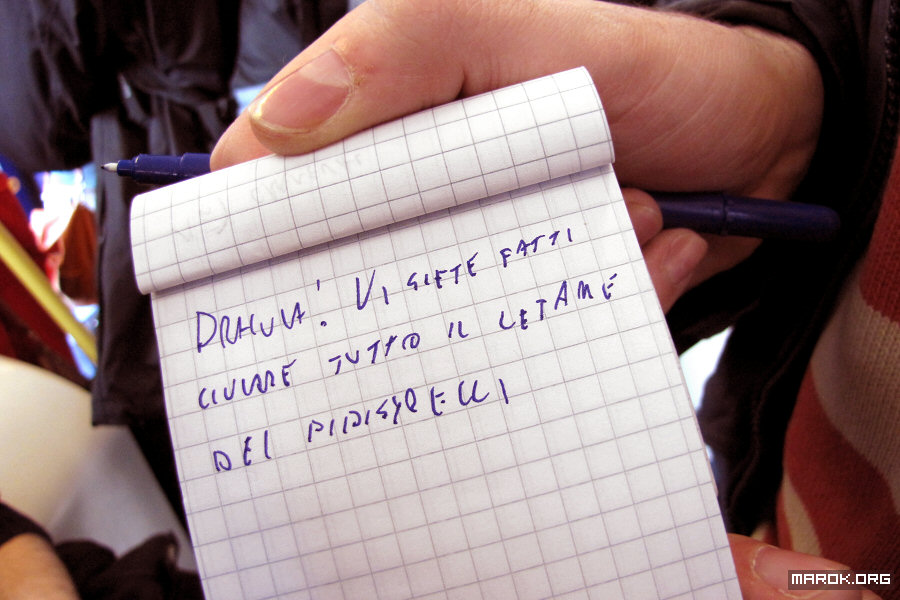 DRACULA! VI SIETE FATTI
CIULARE TUTTO IL LETAME
DEI PIPISTRELLI
MAROK.ORG